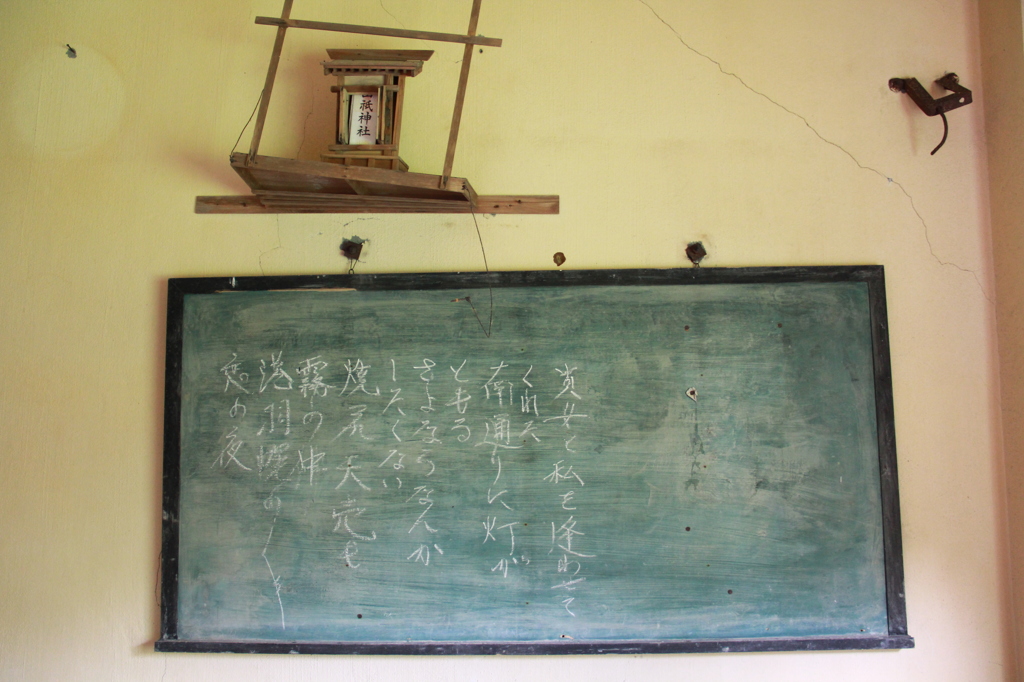 山祇神社
貴女と私を逢わせて
くれた
南通りに灯が
ともる
さよならなんか
したくない
焼尻天売も
霧の中
港羽幌
恋の夜